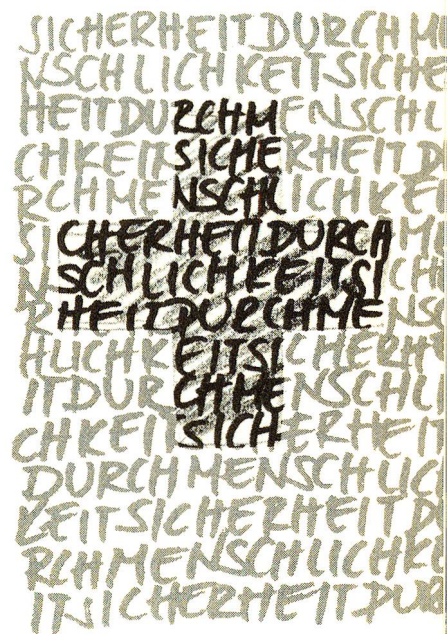 SICHERHEITDURCHM
NSCHLICHKEITSICHE
HEITDURCHMENSCHL
CHKEITSICHERHEITD
RCHMENSCHLICHKE
SICHERHEITDURCHMI
NSCHLICHKEITSICH
RHEITDURCHMENS
HLICHKEITSICHERH
ITDURCHMENSCHLI
CHKEITSICHERHEIT
DURCHMENSCHLIC
KEITSICHERHEITD
RCHMENSCHLICHKE
ITSICHERHEITDUR